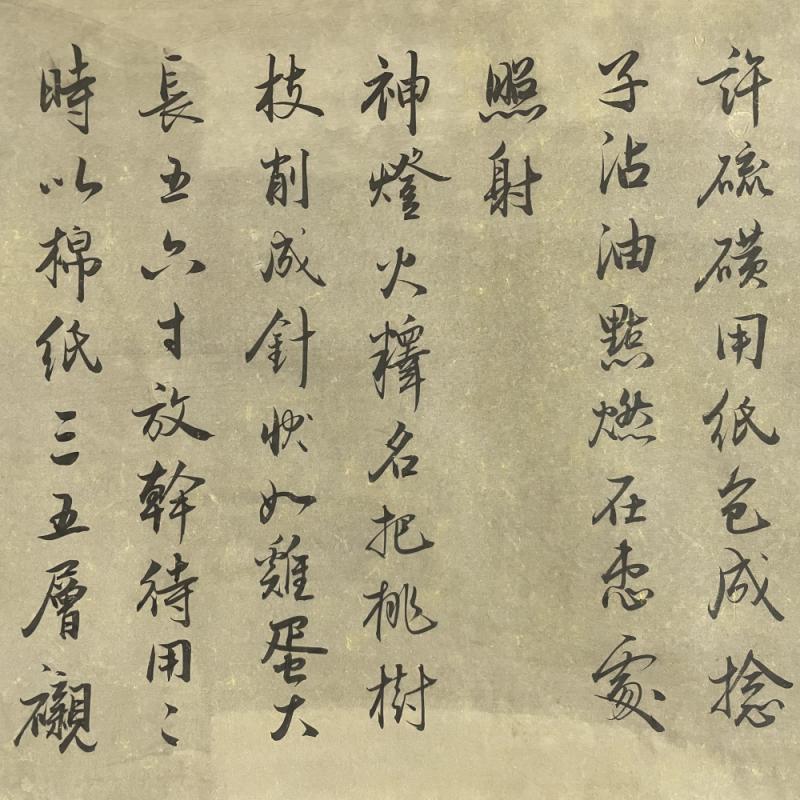 許硫磺用紙包成捻
子沾油點燃在患處
照射
神燈火釋名把桃樹
枝削成針狀如雞蛋大
長五六寸放幹待用〻
時以棉紙三五層襯